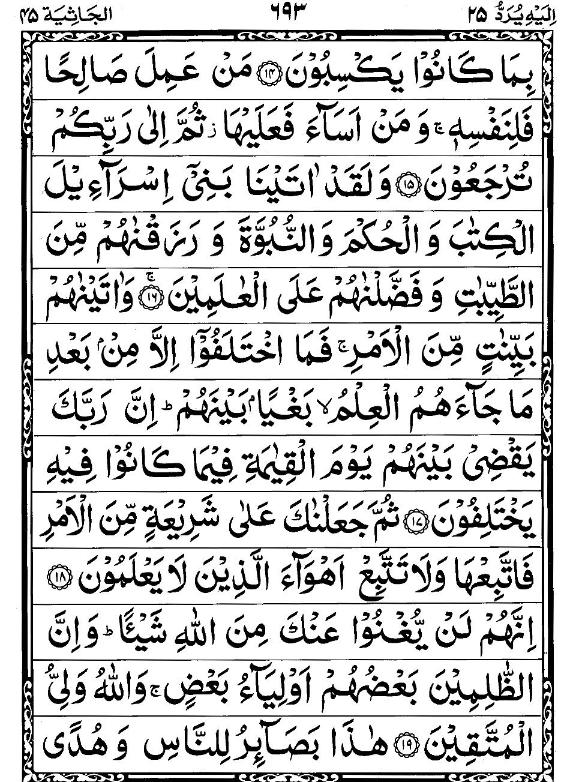 اِلَيْهِ يُرَدُّ ٢٥ ٦٩٣ الجَاثِيَة ٤٥
بِمَا كَانُوْا يَكْسِبُوْنَ ۝۱۴ مَنْ عَمِلَ صَالِحًا
فَلِنَفْسِهٖ ۚ وَ مَنْ اَسَآءَ فَعَلَيْهَا ز ثُمَّ اِلٰى رَبِّكُمْ
تُرْجَعُوْنَ ۝۱۵ وَ لَقَدْ اٰتَيْنَا بَنِيْٓ اِسْرَآءِيْلَ
الْكِتٰبَ وَ الْحُكْمَ وَ النُّبُوَّةَ وَ رَزَقْنٰهُمْ مِّنَ
الطَّيِّبٰتِ وَ فَضَّلْنٰهُمْ عَلَى الْعٰلَمِيْنَ ۚ۝۱۶ وَاٰتَيْنٰهُمْ
بَيِّنٰتٍ مِّنَ الْاَمْرِ ۚ فَمَا اخْتَلَفُوْٓا اِلَّا مِنْۢ بَعْدِ
مَا جَآءَهُمُ الْعِلْمُ ۙ بَغْيًاۢ بَيْنَهُمْ ؕ اِنَّ رَبَّكَ
يَقْضِيْ بَيْنَهُمْ يَوْمَ الْقِيٰمَةِ فِيْمَا كَانُوْا فِيْهِ
يَخْتَلِفُوْنَ ۝۱۷ ثُمَّ جَعَلْنٰكَ عَلٰى شَرِيْعَةٍ مِّنَ الْاَمْرِ
فَاتَّبِعْهَا وَلَا تَتَّبِعْ اَهْوَآءَ الَّذِيْنَ لَا يَعْلَمُوْنَ ۝۱۸
اِنَّهُمْ لَنْ يُّغْنُوْا عَنْكَ مِنَ اللّٰهِ شَيْـًٔا ؕ وَ اِنَّ
الظّٰلِمِيْنَ بَعْضُهُمْ اَوْلِيَآءُ بَعْضٍ ۚ وَاللّٰهُ وَلِيُّ
الْمُتَّقِيْنَ ۝۱۹ هٰذَا بَصَآئِرُ لِلنَّاسِ وَ هُدًى